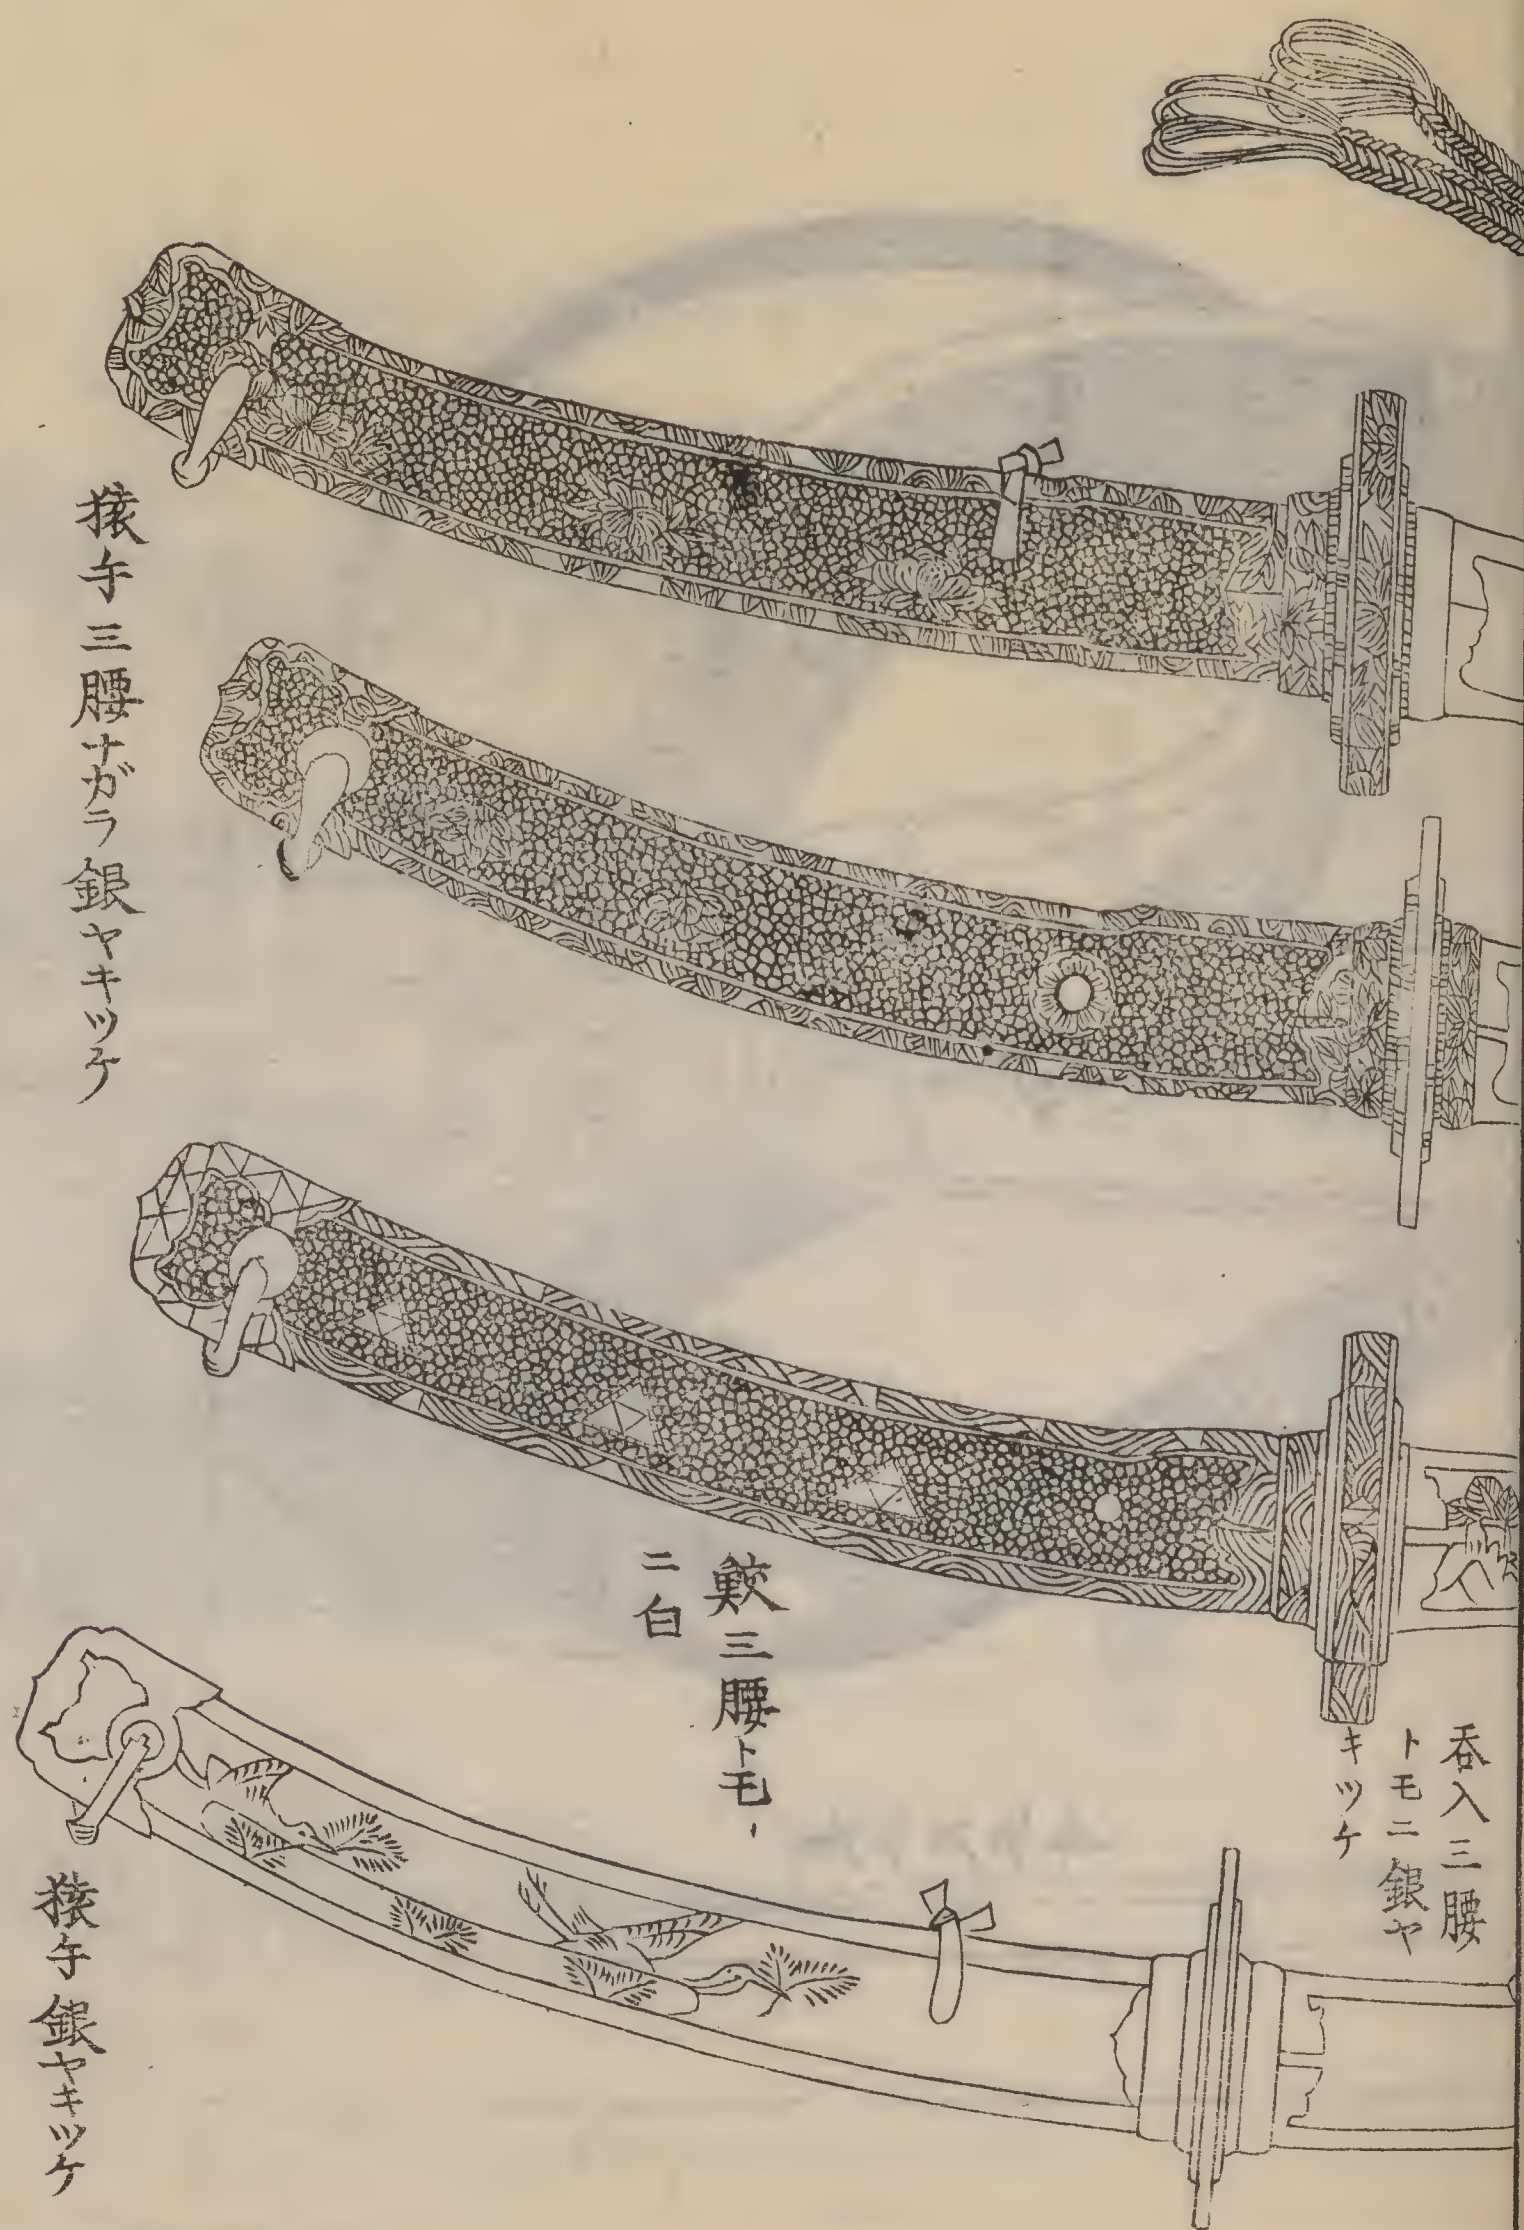 呑入三腰
トモニ銀ヤ
キツケ
鮫三腰トモ
ニ白
猿手三腰ナガラ銀ヤキツケ
猿手銀ヤキツケ